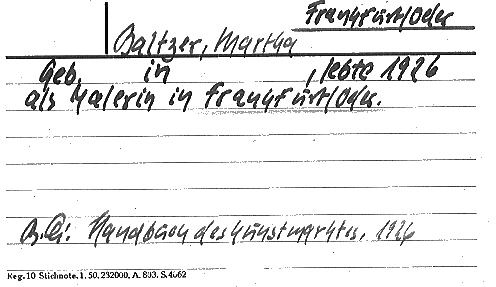 Frankfurt/Oder
Baltzer, Martha
Geb. in , lebte 1926
als Malerin in Frankfurt/Oder.
B.Qu.: Handbuch des Kunstmarktes, 1926
Reg. 10 Stichnote. 1, 50, 232000, A. 803. S. 4662